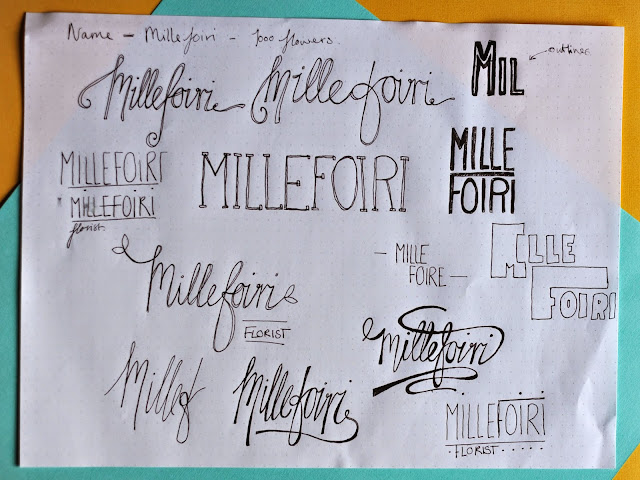 Name - Millefoiri - 1000 flowers.
Millefoiri
Millefoiri
MIL
outlines
MILLEFOIRI
MILLEFOIRI
florist
MILLEFOIRI
MILLE
FOIRI
- MILLE
FOIRE -
MILLE
FOIRI
Millefoiri
FLORIST
Millefoiri
Millef
Millefoiri
MILLEFOIRI
· FLORIST · · · · ·